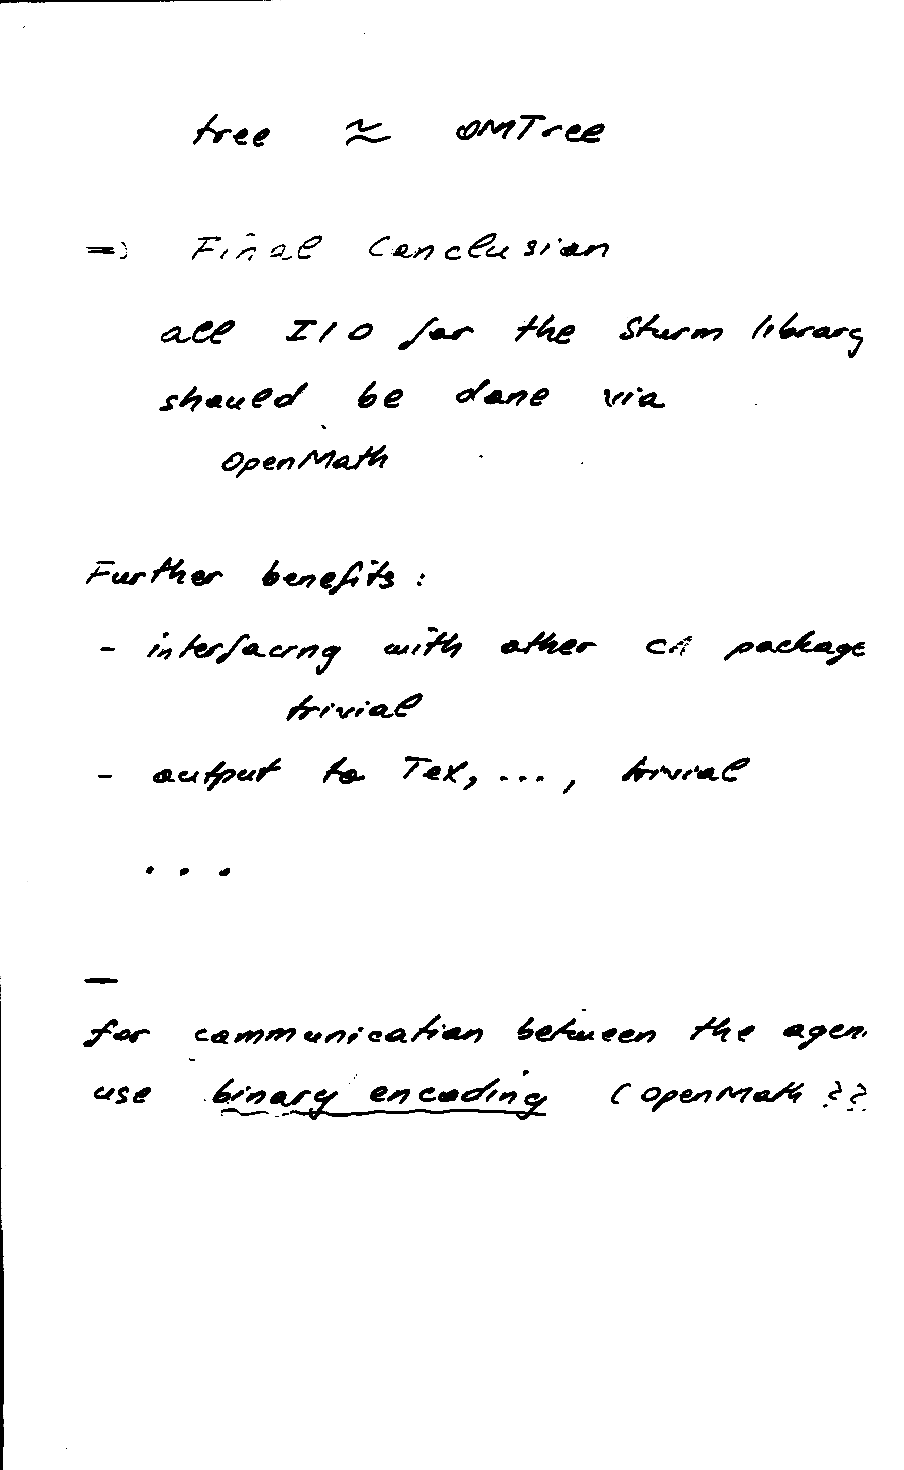 tree ≈ OMTree
=> Final Conclusion
all I/O for the Sturm library
should be done via
OpenMath
Further benefits :
- interfacing with other CA package
trivial
- output to TeX, ... , trivial
. . .
—
for communication between the agen
use binary encoding ( OpenMath ??